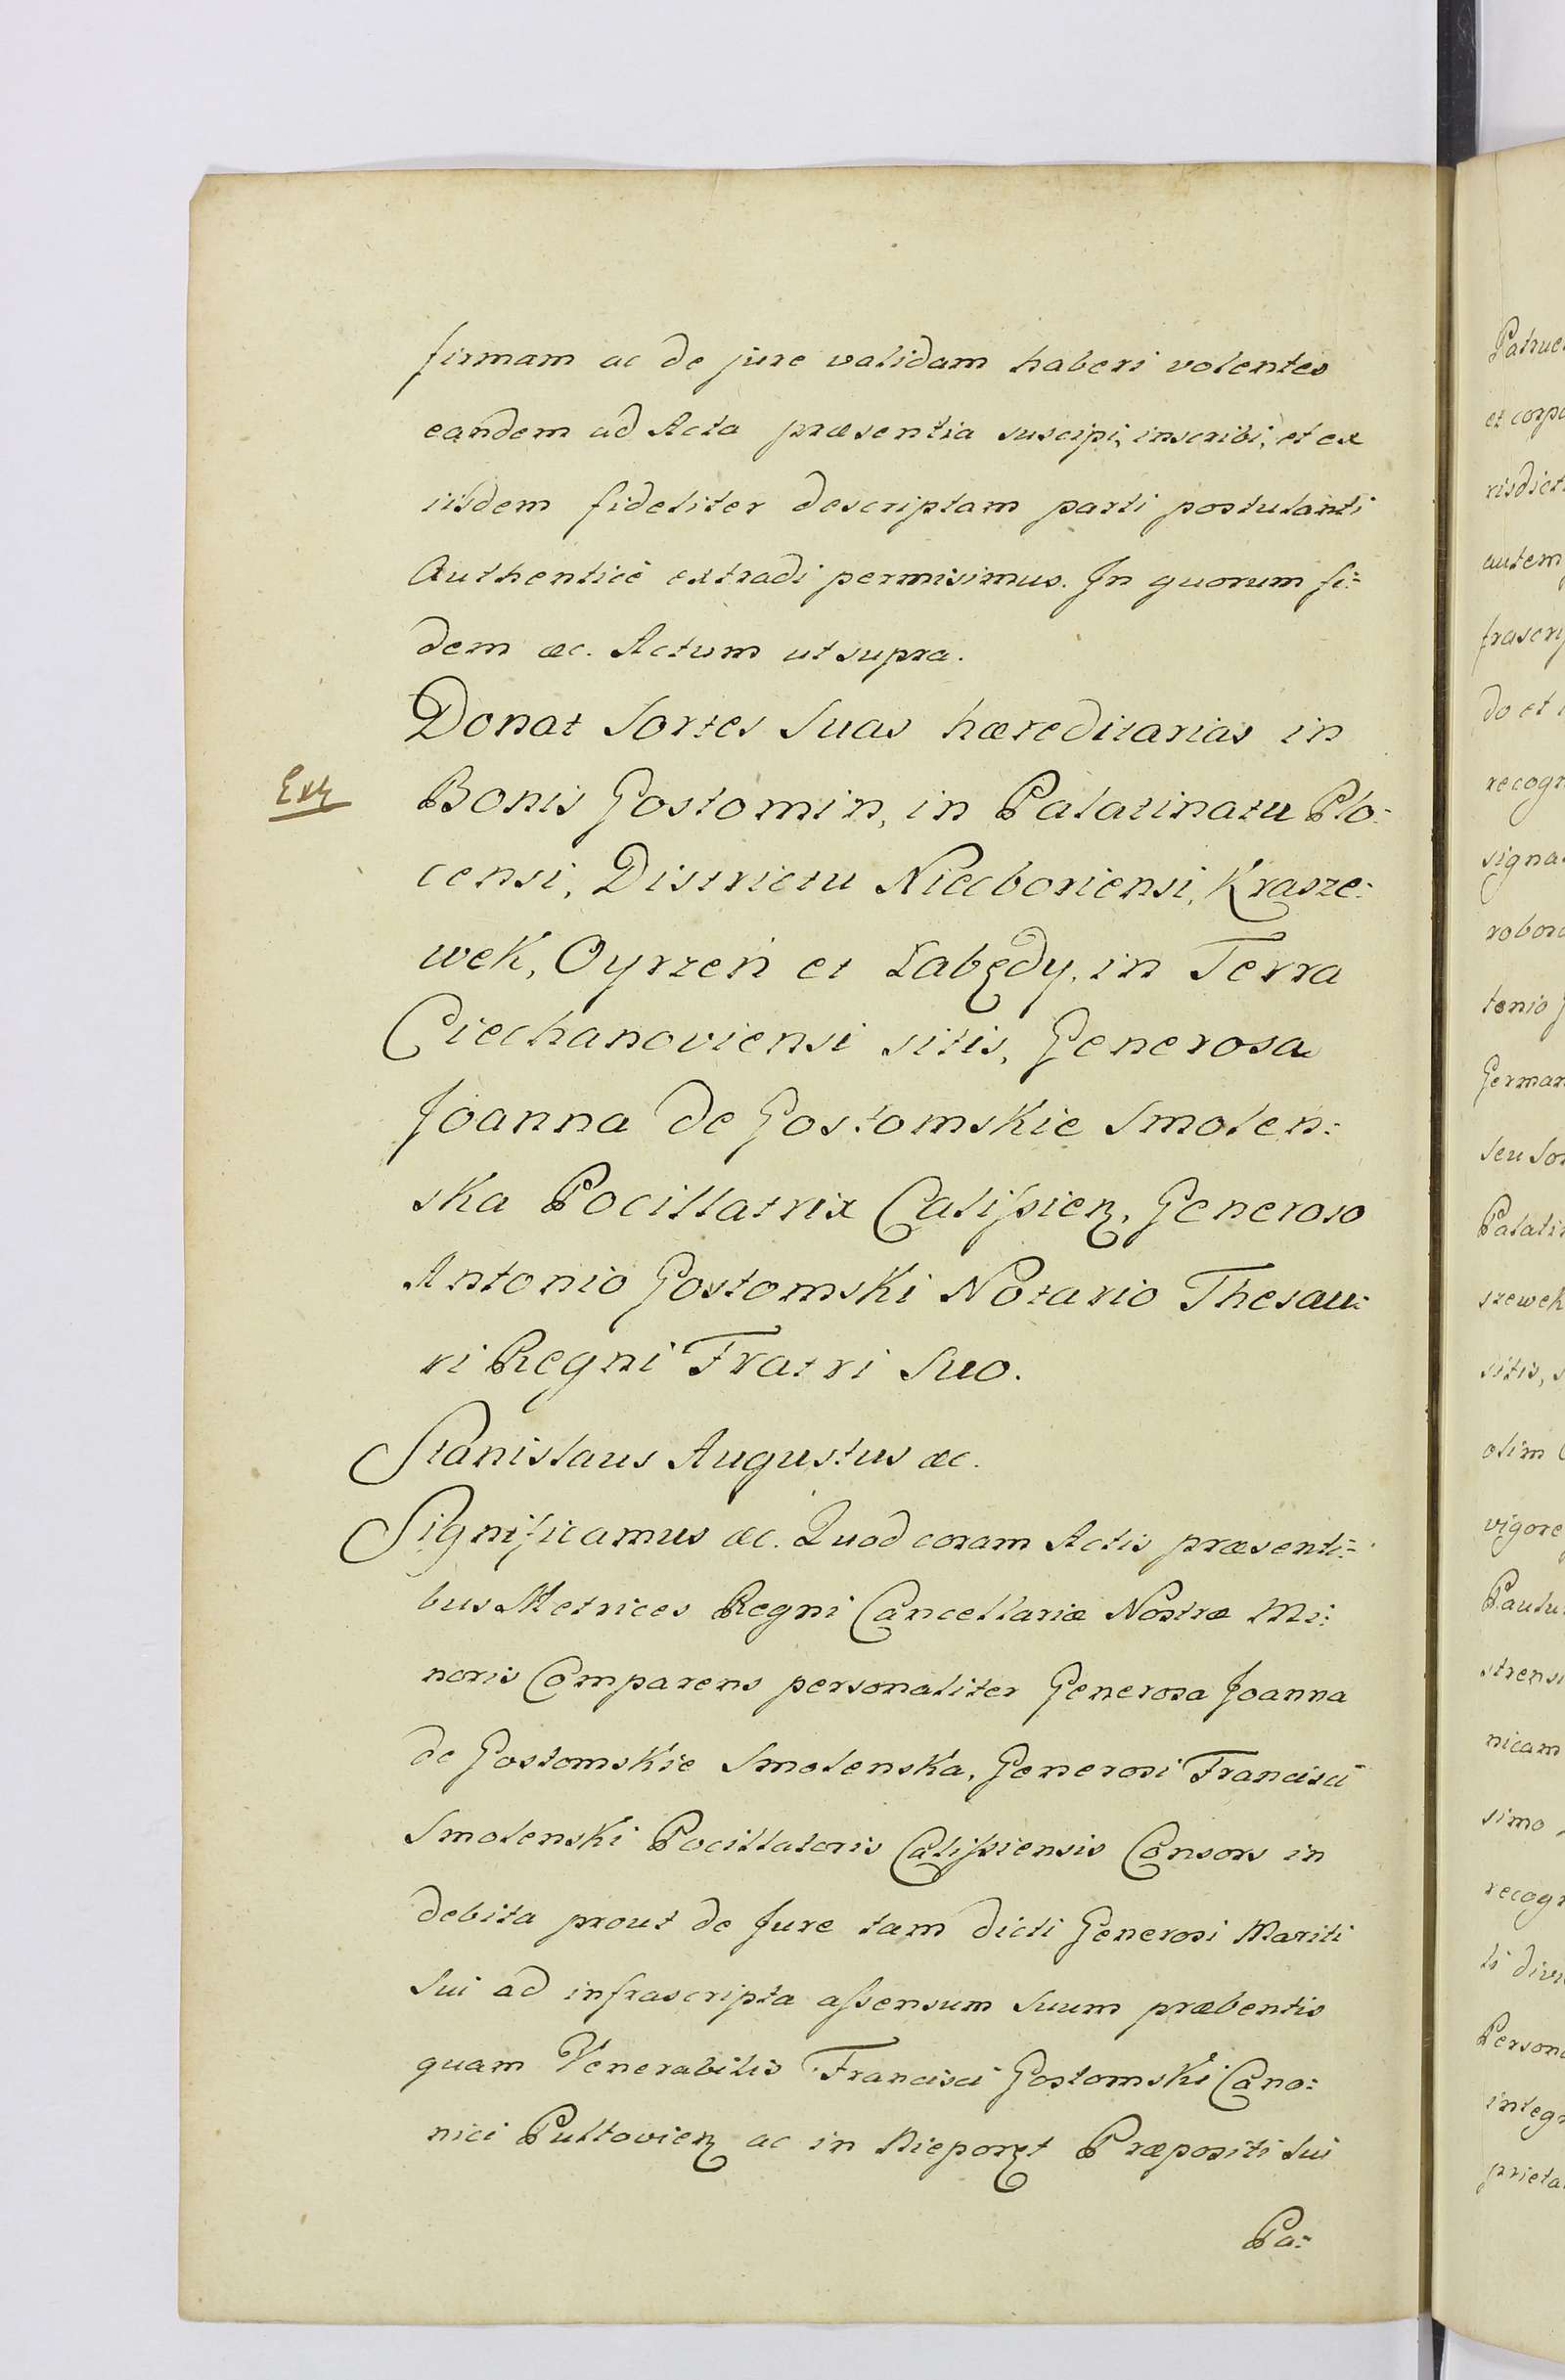 firmam ac de jure validam haberi volentes
eandem ad Acta præsentia suscipi, inscribi, et ex
iisdem fideliter descriptam parti postulanti
Authenticè extradi permisimus. In quorum fi=
dem &c. Actum ut supra.
Donat Sortes Suas hæreditarias in
Ext
Bonis Gostomin, in Palatinatu Plo=
censi, Districtu Niedboriensi, Krasze=
wek, Oyrzeń et Łabędy, in Terra
Ciechanoviensi sitis, Generosa
Joanna de Gostomskie Smolen=
ska Pocillatrix Calissien, Generoso
Antonio Gostomski Notario Thesau=
ri Regni Fratri Suo.
Stanislaus Augustus &c.
Significamus &c. Quod coram Actis præsenti=
bus Metrices Regni Cancellariæ Nostræ Mi=
noris Comparens personaliter Generosa Joanna
de Gostomskie Smolenska, Generosi Francisci
Smolenski Pocillatoris Calissiensis Consors in
debita prout de Jure tam dicti Generosi Mariti
Sui ad infrascripta assensum Suum præbentis
quam Venerabilis Francisci Gostomski Cano=
nici Pultovien ac in Nieporęt Præpositi Sui
Pa=
et corpo
autem
do et
recogn
signa
robora
tonio
German
seu Sor
Palatin
szewek
sitis,
olim
vigore
Paulu
strensi
nicam
simo
recogn
Person
integr
prieta